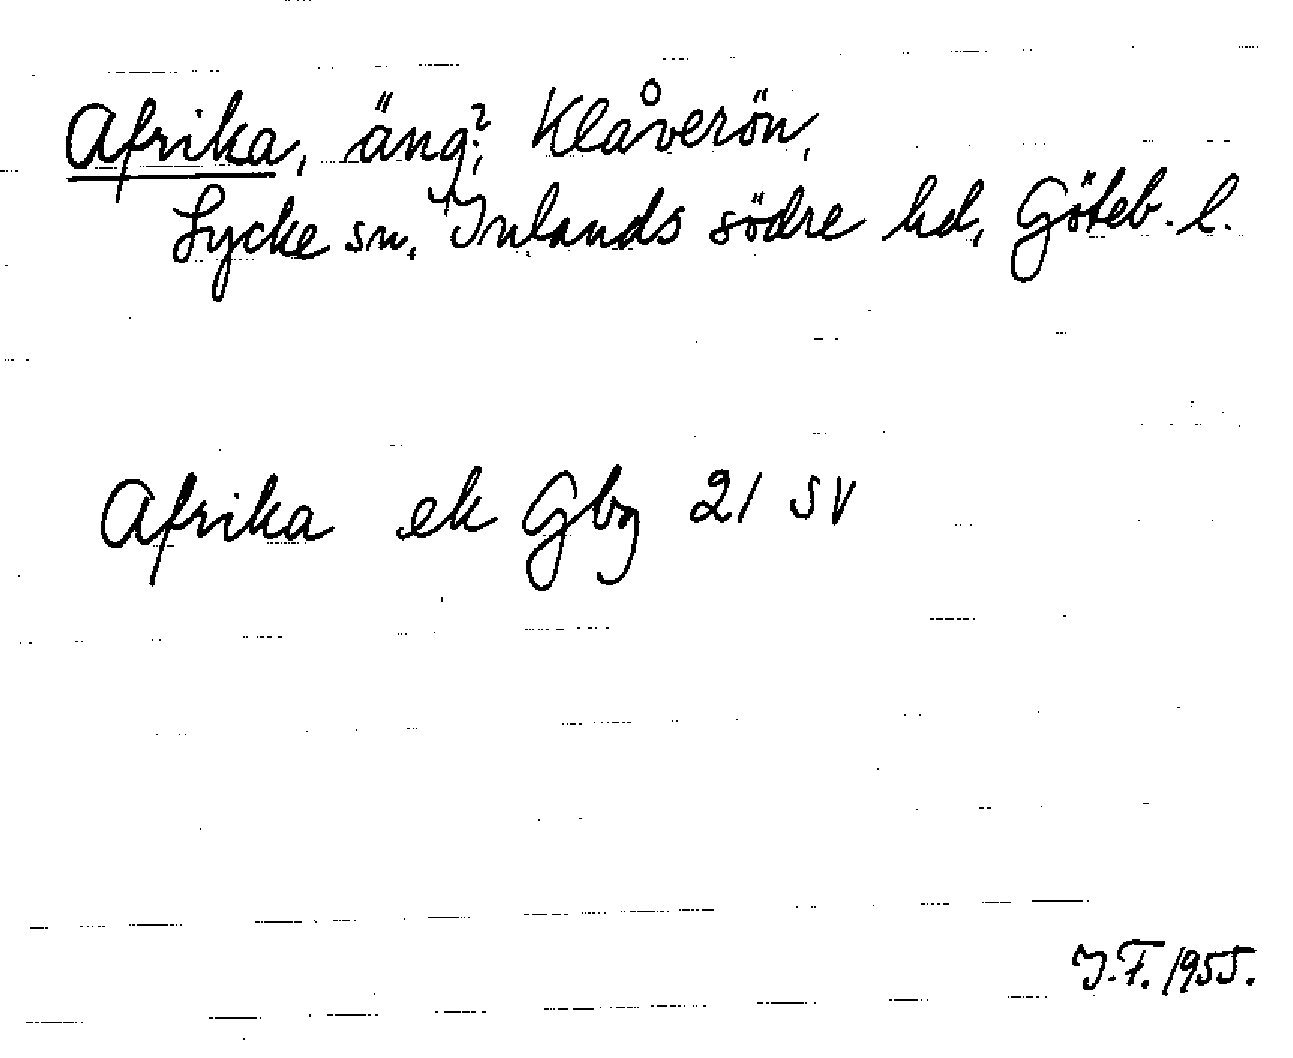 Afrika, äng?, Klåverön,
Lycke sn, Inlands södre hd, Göteb. l.
Afrika ek Gbg 21 SV
I.F. 1955.